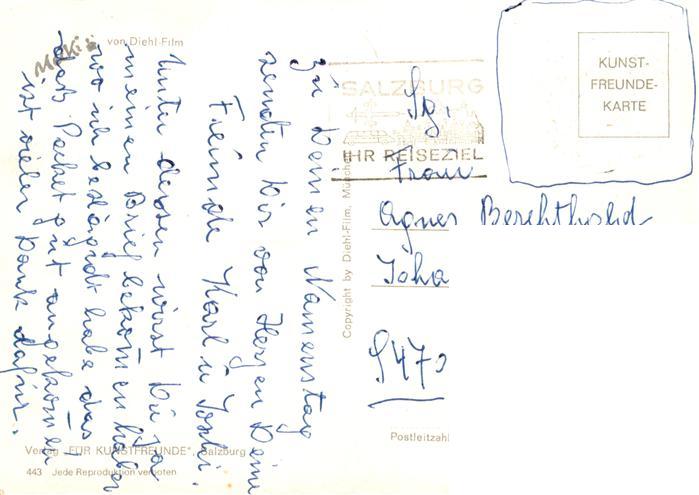 Mecki
von Diehl-Film
Zu Deinem Namenstag
senden Dir von Herzen Deine
Freunde Karl u Joshi.
Unter dessen wirst Du ja
meinen Brief bekom̄en haben
wo ich bestätigt habe das
das Packet gut angekom̄en
ist vielen Dank dafür.
SALZBURG
IHR REISEZIEL
KUNST-
FREUNDE-
KARTE
Sg.
Frau
Agnes
Joha
5470
Postleitzahl
Copyright by Diehl-Film, München
Verlag „FÜR KUNSTFREUNDE", Salzburg
443 Jede Reproduktion verboten